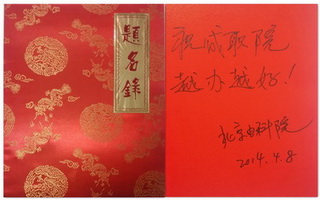 題名錄
祝成职院
越办越好！
北京电科院
2014.4.8